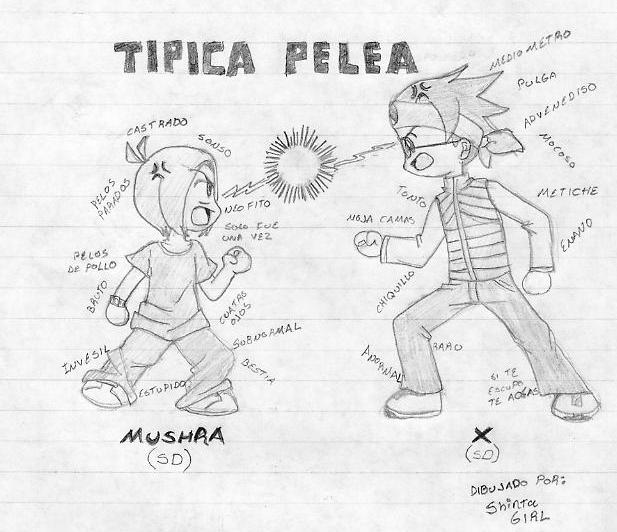 TIPICA PELEA
CASTRADO
SONSO
PELOS
PARADOS
NEOFITO
SOLO FUE
UNA VEZ
PELOS
DE POLLO
BRUTO
CUATRO
OJOS
SUBNORMAL
BESTIA
INVESIL
ESTUPIDO
MEDIO METRO
PULGA
ADVENEDISO
MOCOSO
METICHE
ENANO
TONTO
MOJA CAMAS
CHIQUILLO
ANORMAL
RARO
SI TE
ESCUPO
TE AOGAS
MUSHRA
(SD)
X
(SD)
DIBUJADO POR:
Shinta
GIRL